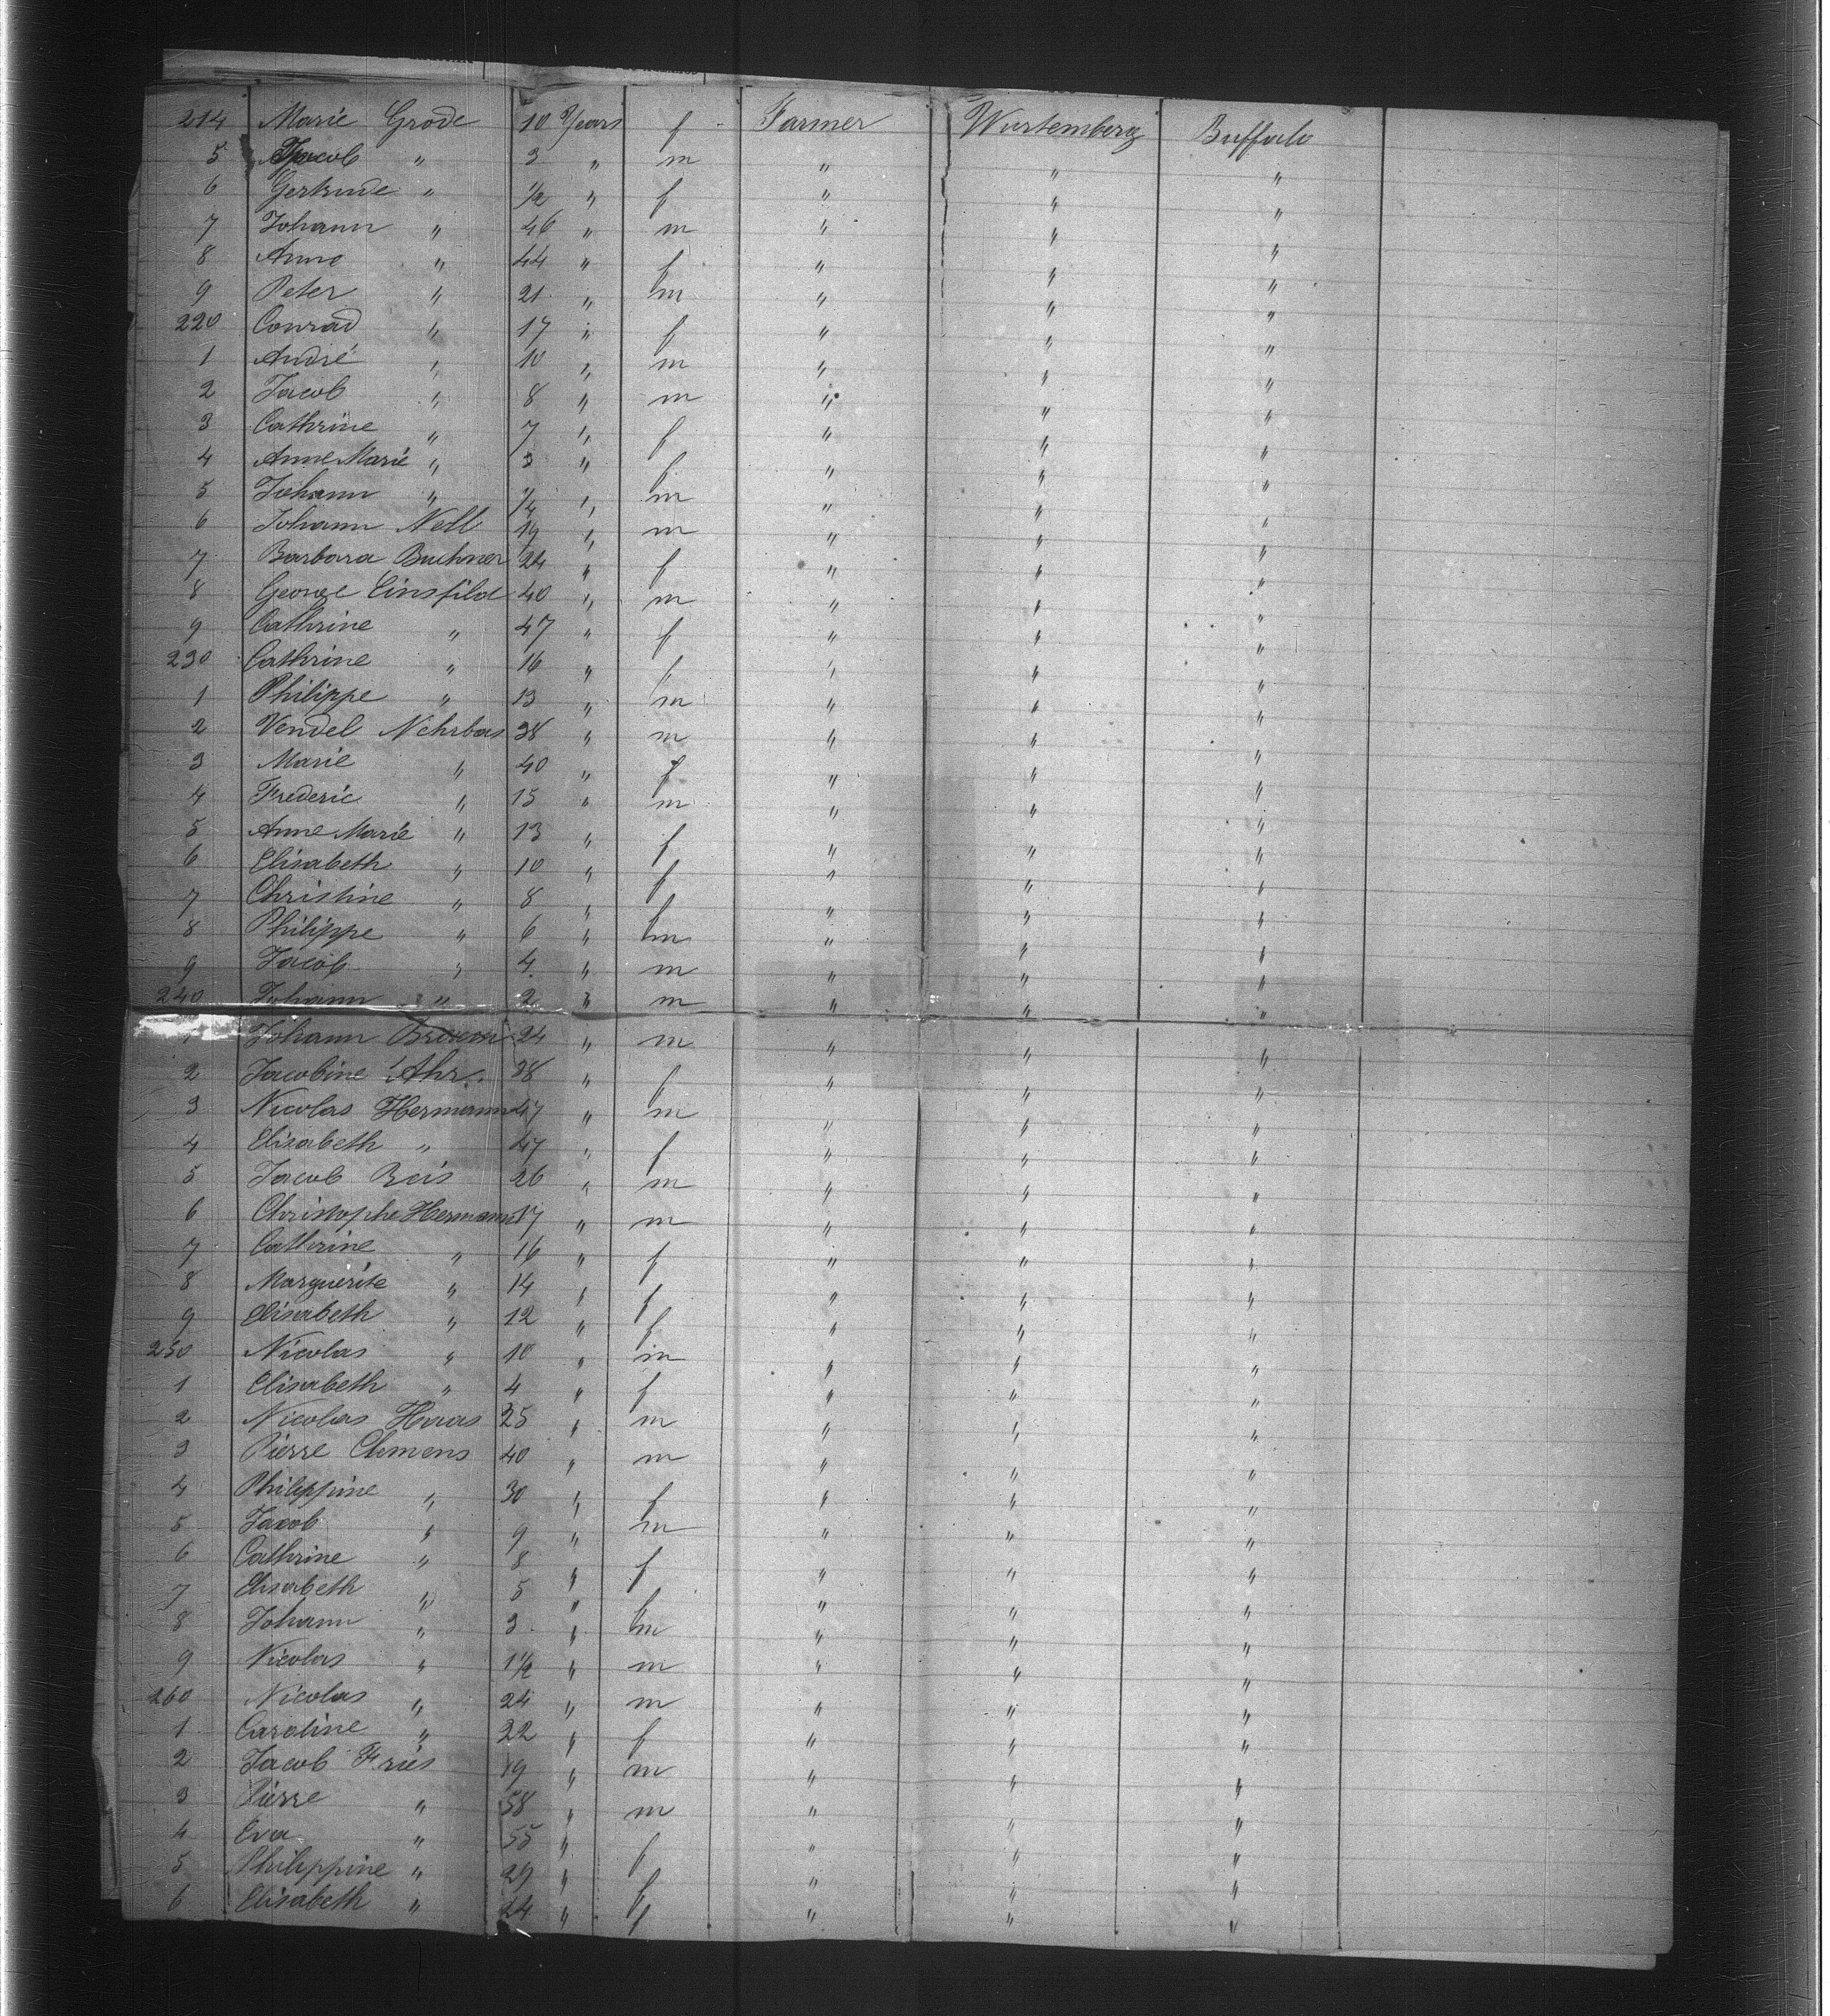 214 Marie Grode 10 Years f Farmer Wurtemberg Buffalo
5 Jacob " 3 " m " " "
6 Gertrude " 1/2 " f " " "
7 Johann " 46 " m " " "
8 Anna " 44 " f " " "
9 Peter " 21 " m " " "
220 Conrad " 17 " f " " "
1 André " 10 " m " " "
2 Jacob " 8 " m " " "
3 Cathrine " 7 " f " " "
4 Anne Marie " 3 " f " " "
5 Johann " 1/4 " m " " "
6 Johann Nell 19 " m " " "
7 Barbara Buchner 24 " f " " "
8 George Einsfild 40 " m " " "
9 Cathrine " 47 " f " " "
230 Cathrine " 16 " f " " "
1 Philippe " 13 " m " " "
2 Vendel Nehrbas 38 " m " " "
3 Marie " 40 " f " " "
4 Frederic " 15 " m " " "
5 Anne Marie " 13 " f " " "
6 Elisabeth " 10 " f " " "
7 Christine " 8 " f " " "
8 Philippe " 6 " m " " "
9 Jacob " 4 " m " " "
240 Johann " 2 " m " " "
1 Johann 24 " m " " "
2 Jacobine Ahr. 28 " f " " "
3 Nicolas Hermann 47 " m " " "
4 Elisabeth " 47 " f " " "
5 Jacob Beis 26 " m " " "
6 Christophe Hermann 17 " m " " "
7 Cathrine " 16 " f " " "
8 Marguerite " 14 " f " " "
9 Elisabeth " 12 " f " " "
250 Nicolas " 10 " m " " "
1 Elisabeth " 4 " f " " "
2 Nicolas Haas 25 " m " " "
3 Pierre Clemens 40 " m " " "
4 Philippine " 30 " f " " "
5 Jacob " 9 " m " " "
6 Cathrine " 8 " f " " "
7 Elisabeth " 5 " f " " "
8 Johann " 3 " m " " "
9 Nicolas " 1 1/2 " m " " "
260 Nicolas " 24 " m " " "
1 Caroline " 22 " f " " "
2 Jacob Fries 19 " m " " "
3 Pierre " 58 " m " " "
4 Eva " 55 " f " " "
5 Philippine " 29 " f " " "
6 Elisabeth " 24 " f " " "